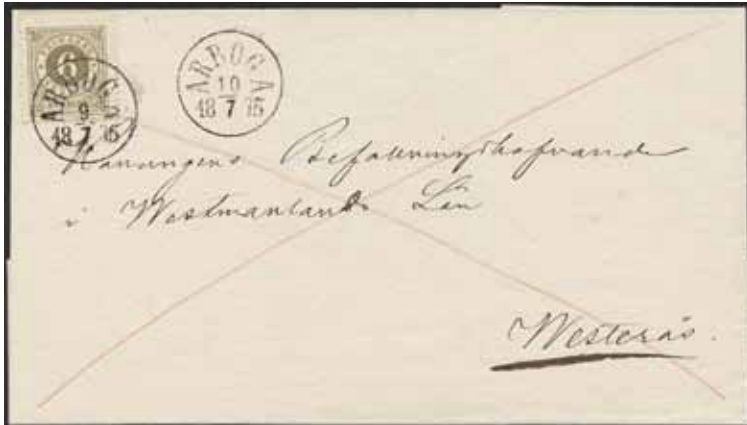 6
ARBOGA
9
18 7 75
ARBOGA
10
18 7 75
Konungens Befallningshafvande
i Westmanlands Län
Westerås.